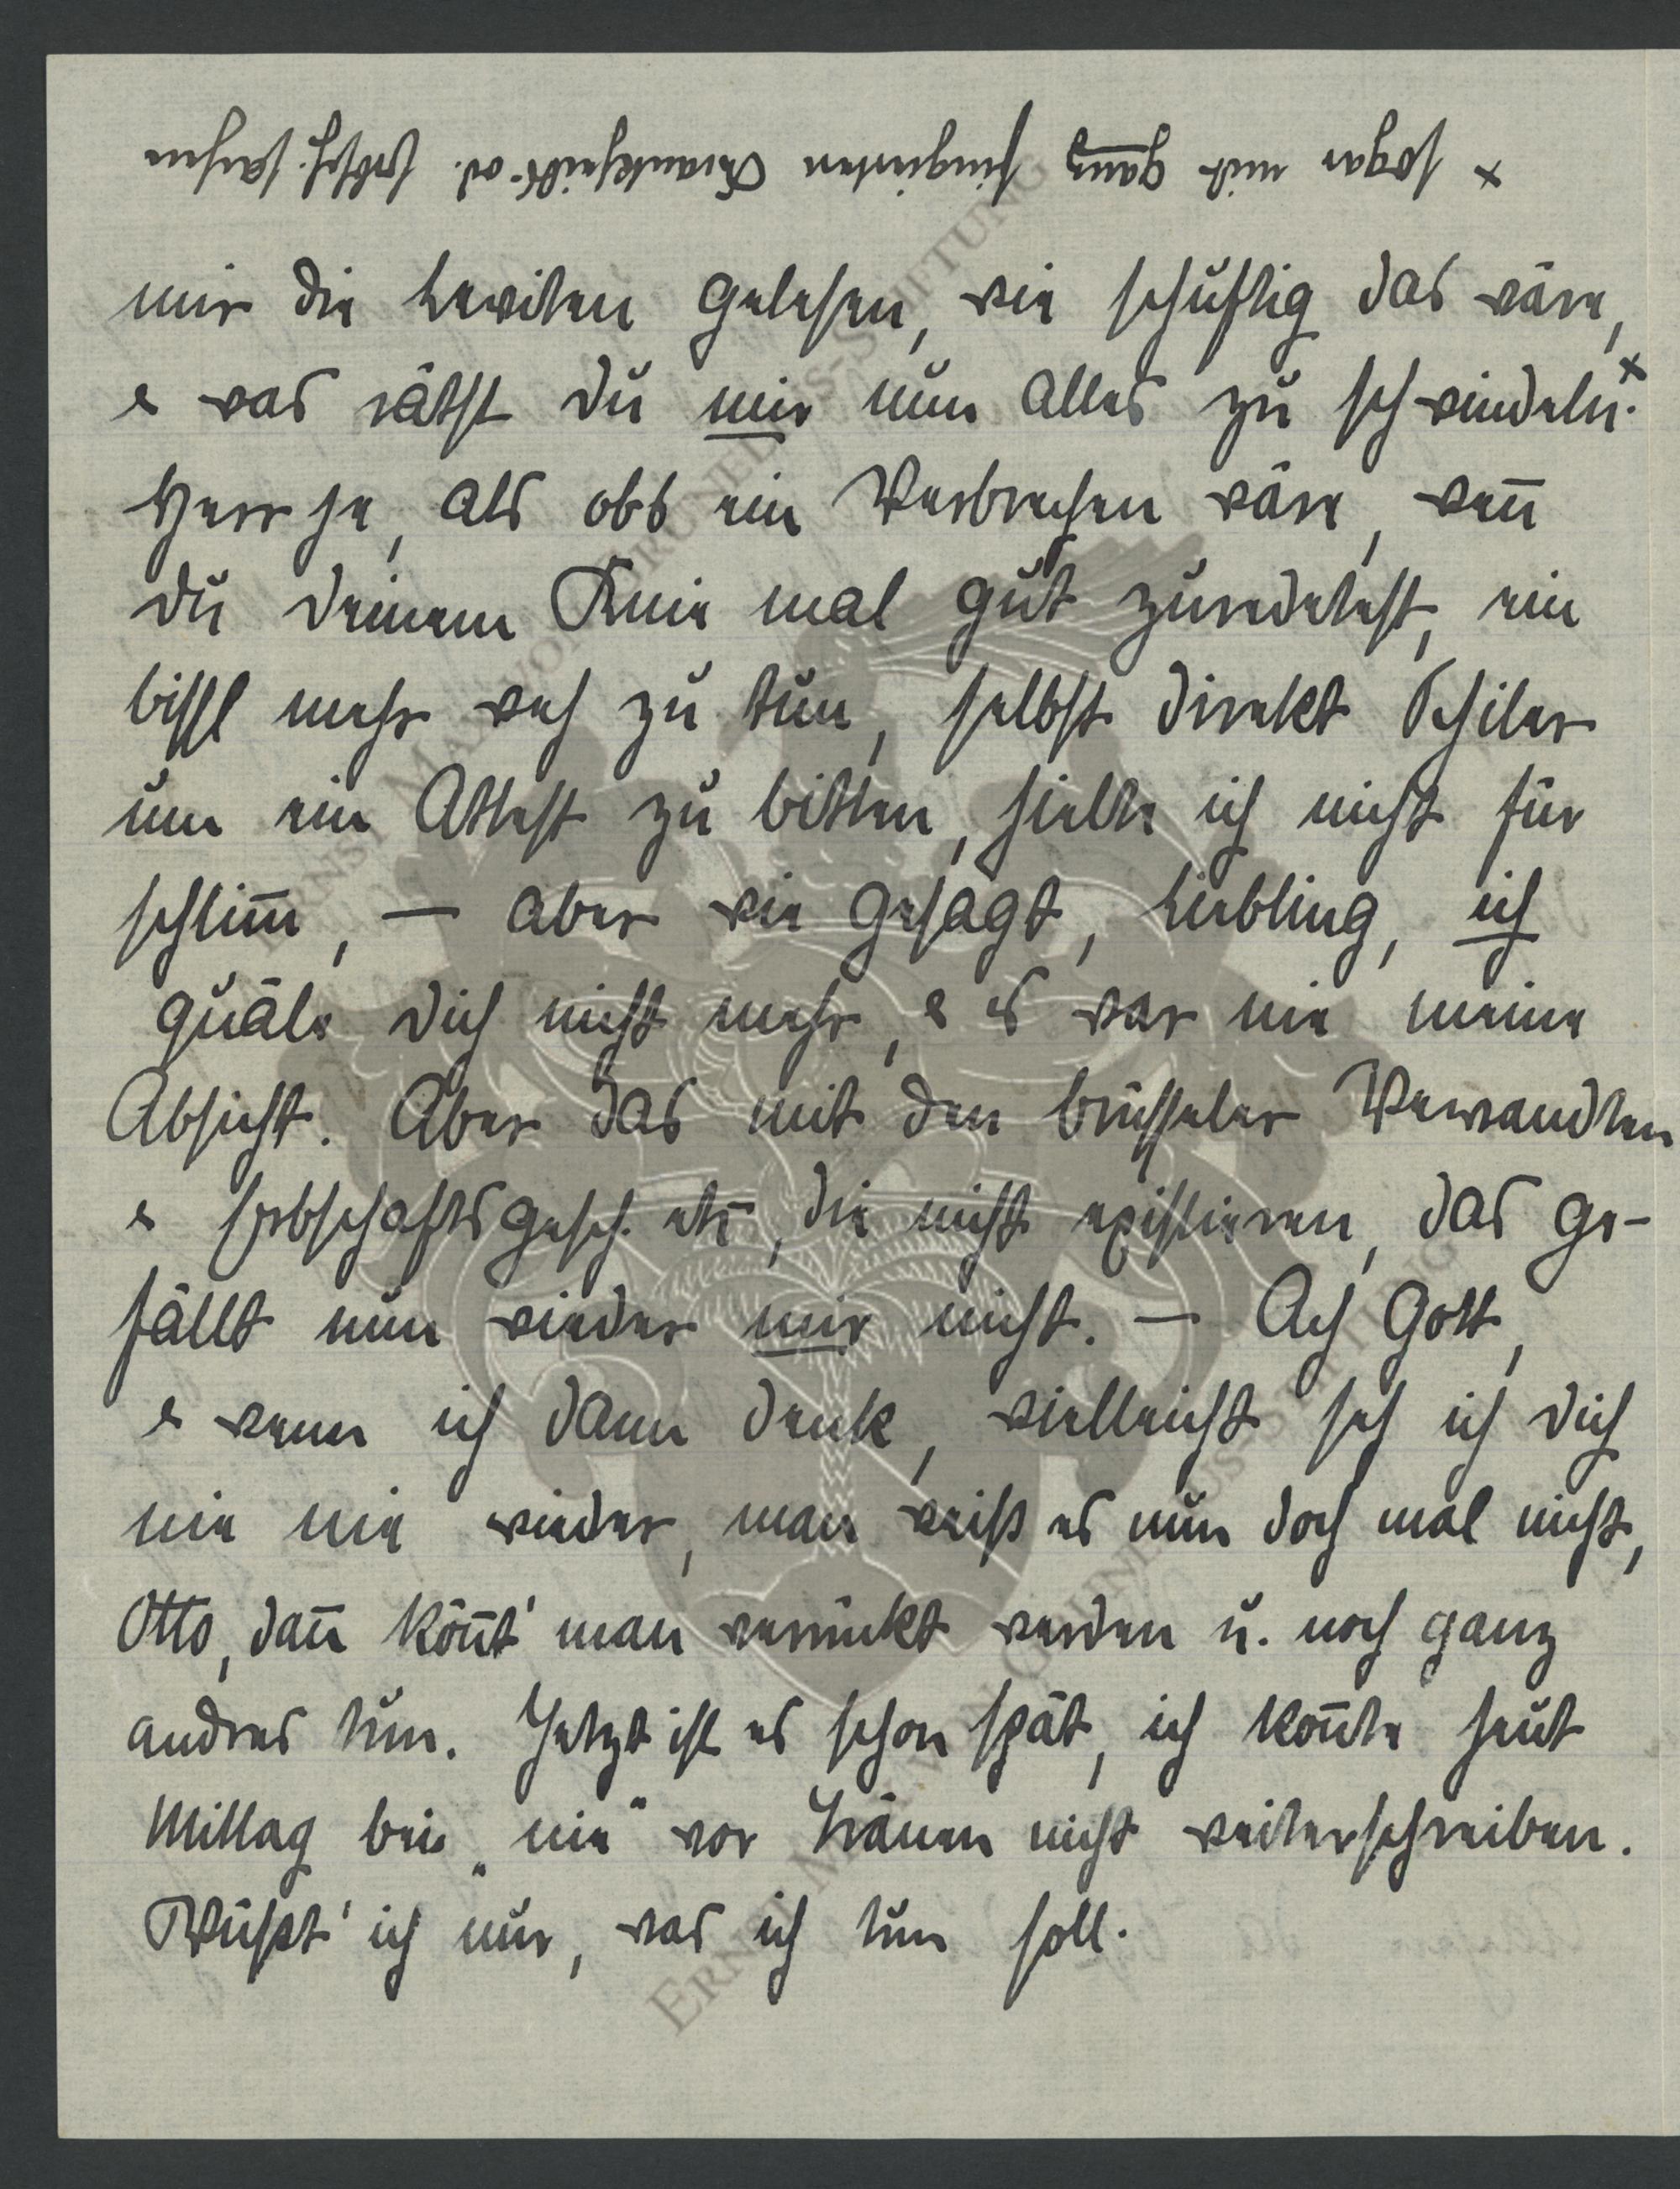 x sogar mit ganz fingierten Krankheits- od. Erbsch. sachen
mir die Leviten gelesen, wie schuftig das wäre,
& was rätst du mir nun alles zu schwindeln.x
Herr je, als obs ein Verbrechen wäre, weñ
du deinem Knie mal gut zuredetest, ein
bissl mehr weh zu tun, selbst direkt
um ein Attest zu bitten, hielte ich nicht für
schlim̄, — aber wie gesagt, Liebling, ich
quäle dich nicht mehr, & es war nie meine
Absicht. Aber das mit den brüsseler Verwandten
& Erbschaftsgesch. etc, die nicht existieren, das ge-
fällt nun wieder mir nicht. — Ach Gott,
& wenn ich dann denk, vielleicht seh ich dich
nie nie wieder, man weiß es nun doch mal nicht,
Otto, dañ köñt' man verrückt werden u. noch ganz
andres tun. Jetzt ist es schon spät, ich koñte heut
Mittag bei „nie" vor Tränen nicht weiterschreiben.
Wüßt' ich nur, was ich tun soll.
ERNST MAX VON GRUNELIUS-STIFTUNG
ERNST MAX VON GRUNELIUS-STIFTUNG